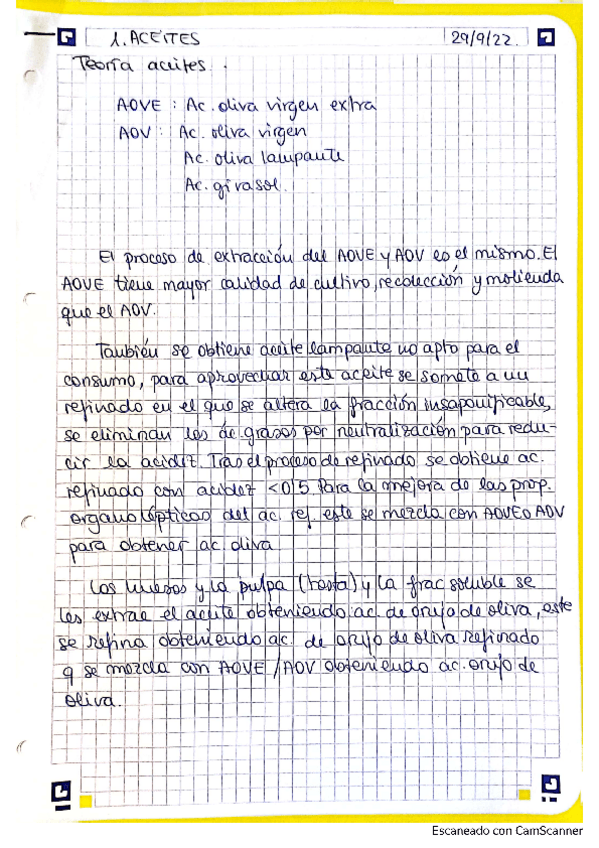 1. ACEITES
29/9/22.
Teoría aceites.
AOVE : Ac. oliva virgen extra
AOV : Ac. oliva virgen
Ac. oliva lampante
Ac. girasol.
El proceso de extracción del AOVE y AOV es el mismo. El
AOVE tiene mayor calidad de cultivo, recolección y molienda
que el AOV.
También se obtiene aceite lampante no apto para el
consumo, para aprovechar este aceite se somete a un
refinado en el que se altera la fracción insaponificable,
se eliminan los ác. grasos por neutralización para redu-
cir la acidez. Tras el proceso de refinado se obtiene ac.
refinado con acidez <0'5. Para la mejora de las prop.
organolépticas del ac. ref. este se mezcla con AOVE o AOV
para obtener ac. oliva
Los huesos y la pulpa (torta) y la frac soluble se
les extrae el aceite obteniendo ac. de orujo de oliva, este
se refina obteniendo ac. de orujo de oliva refinado
q se mezcla con AOVE / AOV obteniendo ac. orujo de
oliva.
Escaneado con CamScanner